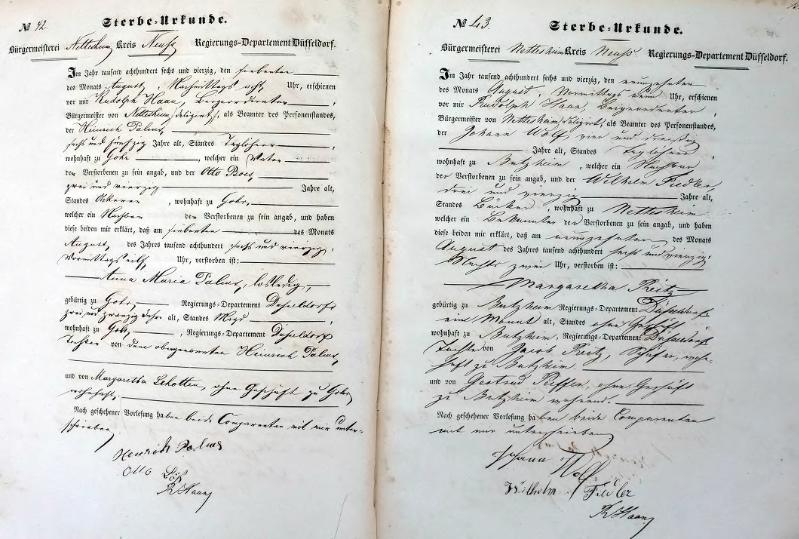 № 42
Sterbe-Urkunde.
Bürgermeisterei Nettesheim Kreis Neuss Regierungs-Departement Düsseldorf.
Im Jahr tausend achthundert sechs und vierzig, den siebenten
des Monats August, Nachmittags Uhr, erschienen
vor mir Rudolph Haan, Beigeordneter
Bürgermeister von Nettesheim delegirt, als Beamter des Personenstandes,
der Heinrich
sechs und fünfzig Jahre alt, Standes Taglöhner
wohnhaft zu Gohr, welcher ein Vater
des Verstorbenen zu sein angab, und der Otto
zwei und vierzig Jahre alt,
Standes Ackerer, wohnhaft zu Gohr,
welcher ein Nachbar des Verstorbenen zu sein angab, und haben
diese beiden mir erklärt, daß am siebenten des Monats
August, des Jahres tausend achthundert sechs und vierzig,
Vormittags elf, Uhr, verstorben ist:
Anna Maria ledig,
gebürtig zu Gohr, Regierungs-Departement Düsseldorf
zwei und zwanzig Jahr alt, Standes Magd
wohnhaft zu Gohr, Regierungs-Departement Düsseldorf
Tochter von dem obgenannten Heinrich
und von Margaretha ohne Geschäft zu Gohr
wohnhaft,
Nach geschehener Vorlesung haben beide Comparenten mit mir unter-
schrieben
Heinrich
Otto
R Haan
№ 43
Sterbe-Urkunde.
Bürgermeisterei Nettesheim Kreis Neuss Regierungs-Departement Düsseldorf.
Im Jahr tausend achthundert sechs und vierzig, den neunzehnten
des Monats August, Vormittags neun Uhr, erschienen
vor mir Rudolph Haan, Beigeordneter
Bürgermeister von Nettesheim delegirt, als Beamter des Personenstandes,
der Johann Wolf vier und dreißig
Jahre alt, Standes Taglöhner
wohnhaft zu Butzheim, welcher ein Nachbar
des Verstorbenen zu sein angab, und der Wilhelm Fiedler
drei und vierzig Jahre alt,
Standes Bäcker, wohnhaft zu Nettesheim
welcher ein Bekannter des Verstorbenen zu sein angab, und haben
diese beiden mir erklärt, daß am neunzehnten des Monats
August des Jahres tausend achthundert sechs und vierzig
Nachts zwei Uhr, verstorben ist:
Margaretha Reitz
gebürtig zu Butzheim Regierungs-Departement Düsseldorf
ein Monat alt, Standes ohne Geschäft
wohnhaft zu Butzheim, Regierungs-Departement Düsseldorf
Tochter von Jacob Reitz, Schäfer, wohn-
haft zu Butzheim
und von Gertrud ohne Geschäft
zu Butzheim wohnend.
Nach geschehener Vorlesung haben beide Comparenten
mit mir unterschrieben
Johann Wolf
Wilhelm Fiedler
R Haan